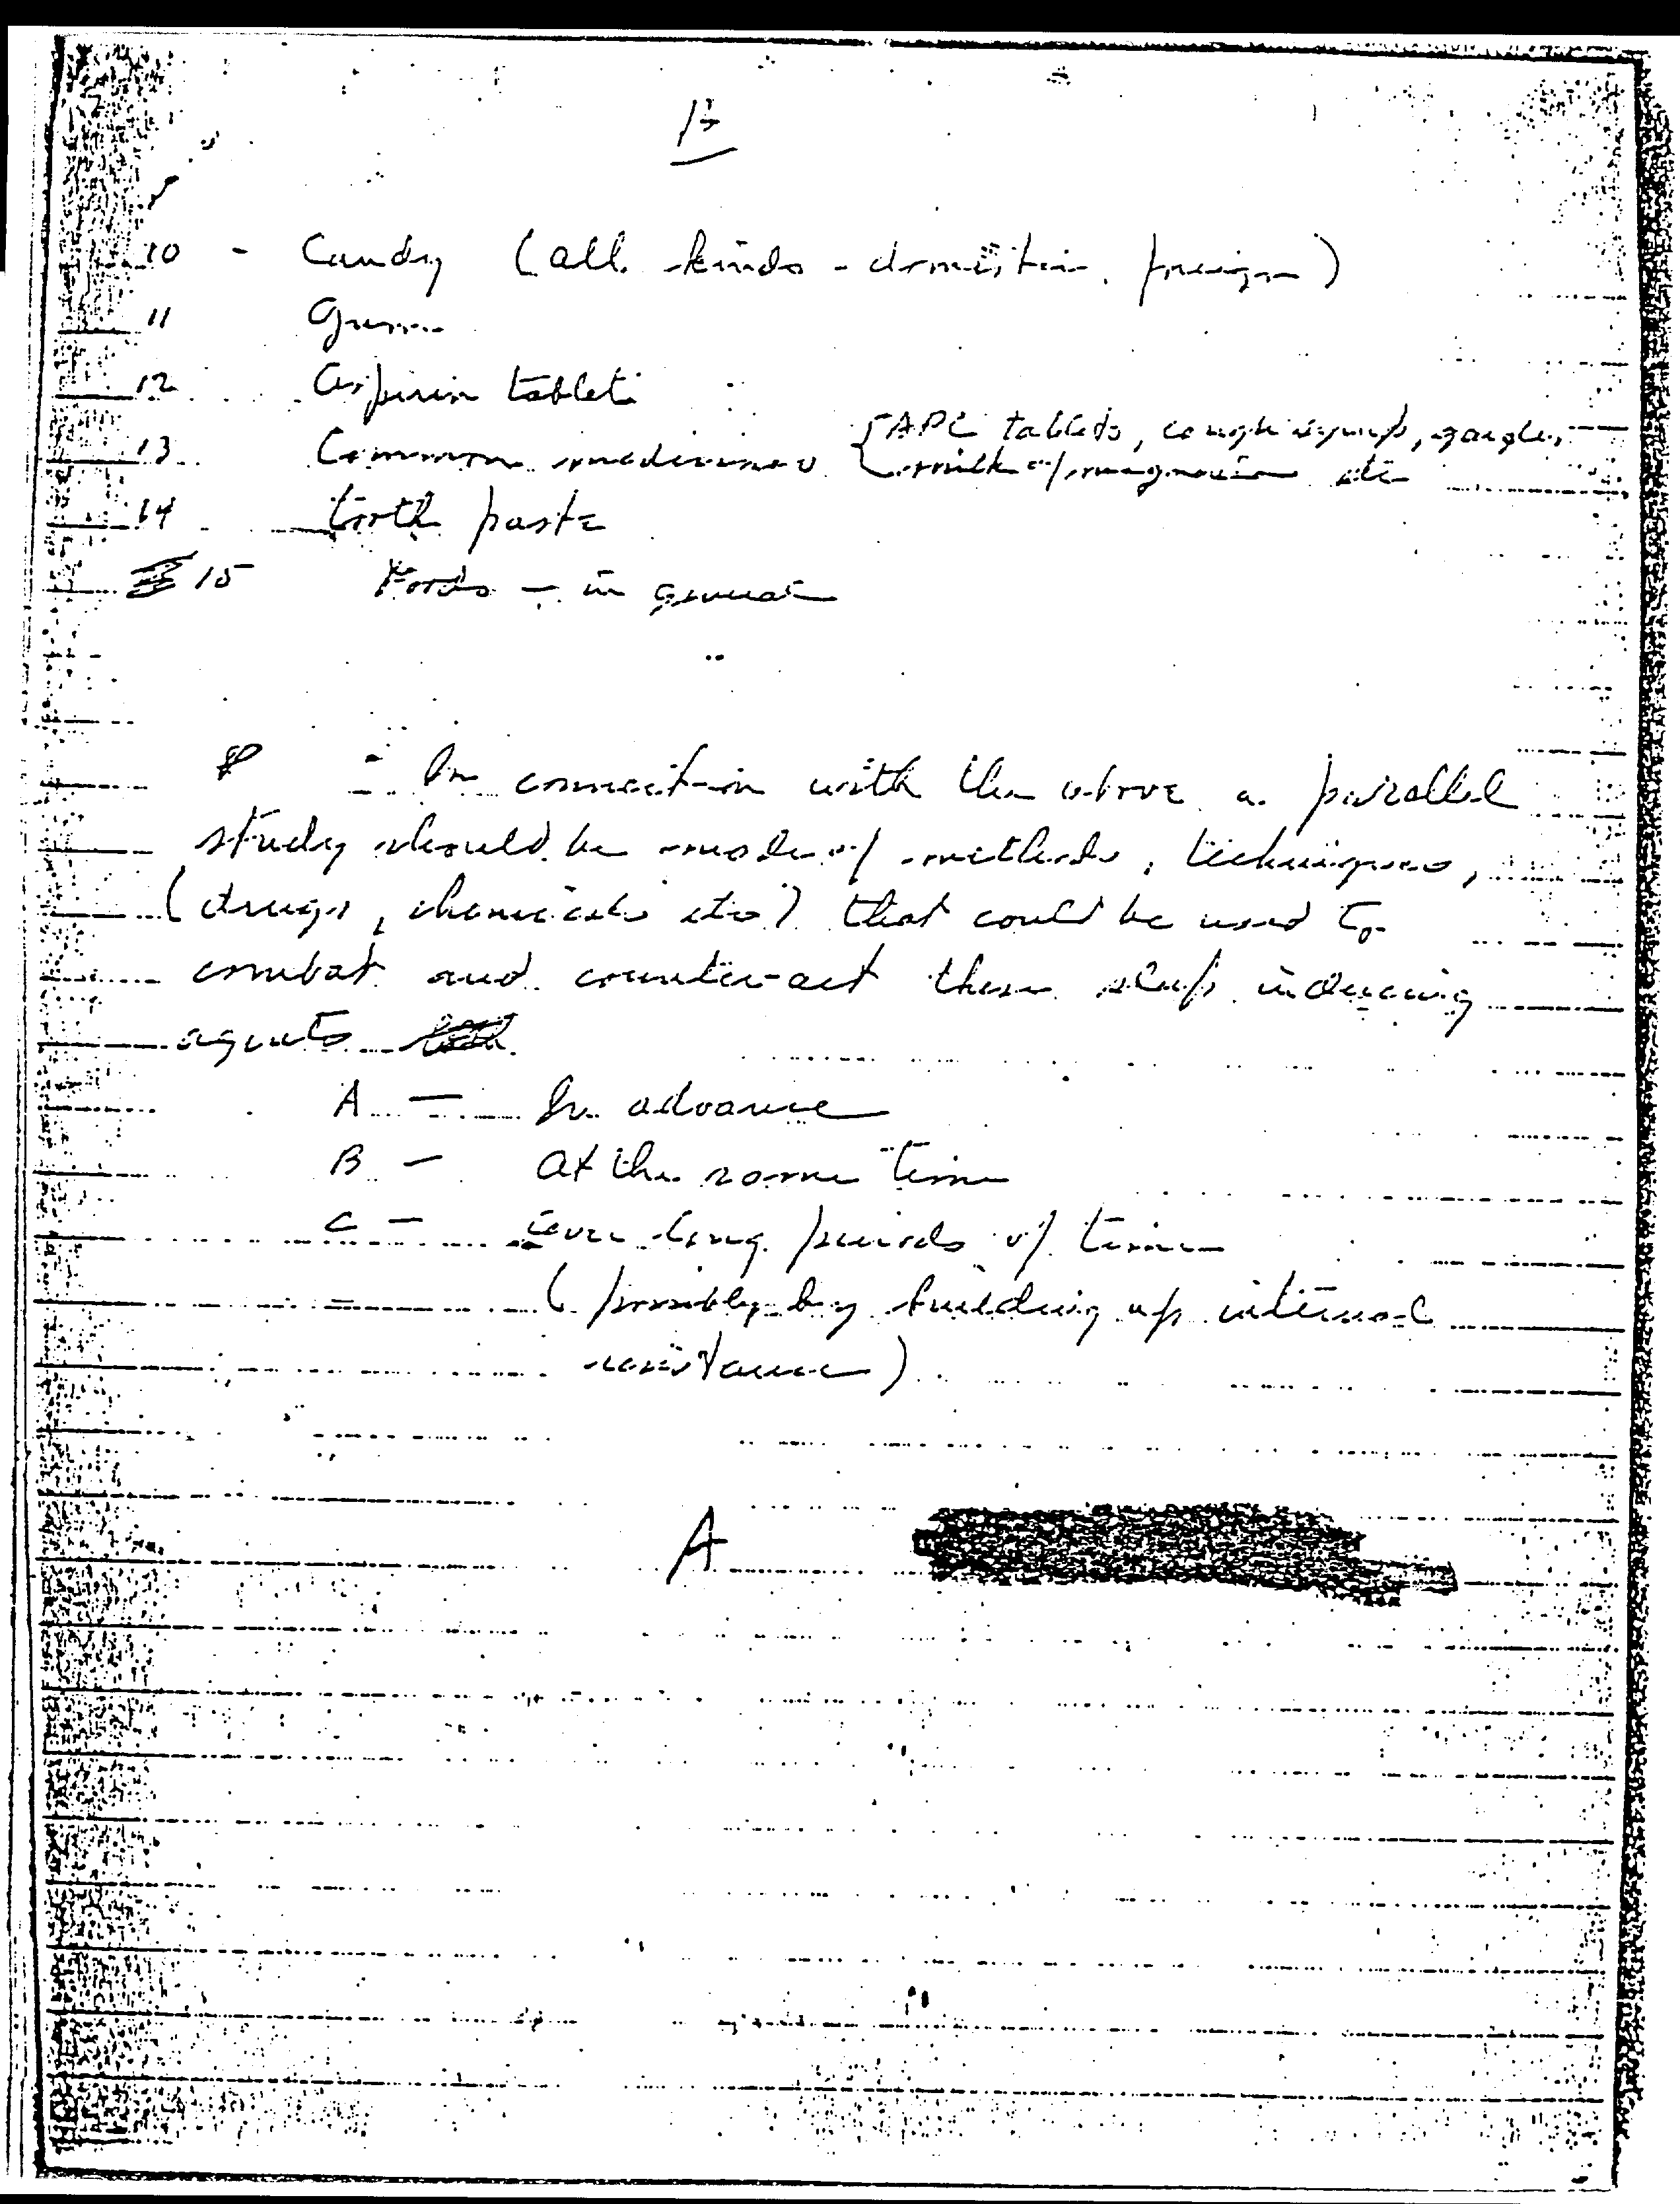 10 - Candy (all kinds - domestic, foreign)
11 Gum
12 Aspirin tablets
13 Common medicines { APC tablets, cough syrups, gargles,
milk of magnesia etc
14 tooth paste
15 Foods - in general
- In connection with the above a parallel
study should be made of methods, techniques,
(drugs, chemicals etc) that could be used to
combat and counter-act these sleep inducing
agents
A - In advance
B - At the same time
C - Over long periods of time
(possibly by building up internal
resistance)
A